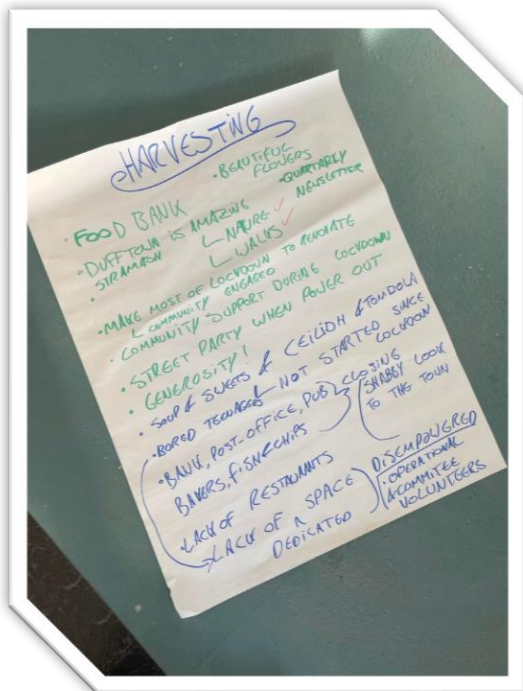 HARVESTING
• BEAUTIFUL FLOWERS
• QUARTARLY NEWSLETTER
• FOOD BANK
• DUFFTOWN IS AMAZING
STRAMASH
↳ NATURE ✓
↳ WALKS ✓
•
• MAKE MOST OF LOCKDOWN TO RENOVATE
↳ COMMUNITY ENGAGED
• COMMUNITY SUPPORT DURING LOCKDOWN
• STREET PARTY WHEN POWER OUT
• GENEROSITY!
• SOUP & SWEETS & CEILIDH & TOMDOLA
↳ NOT STARTED SINCE LOCKDOWN
• BORED TEENAGERS
• BANK, POST-OFFICE, PUB
BAKERS, FISH & CHIPS
CLOSING
SHABBY LOOK
TO THE TOWN
• LACK OF RESTAURANTS
LACK OF A SPACE
DEDICATED
DISEMPOWERED
• OPERATIONAL
& COMMITEE
VOLUNTEERS